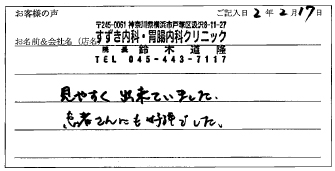 お客様の声 ご記入日 2年 2月 17日
〒245-0061 神奈川県横浜市戸塚区汲沢8-11-27
お名前&会社名(店名 すずき内科・胃腸内科クリニック
院長 鈴木道隆
TEL 045-443-7117
見やすく出来ていました。
患者さんにも好評でした。